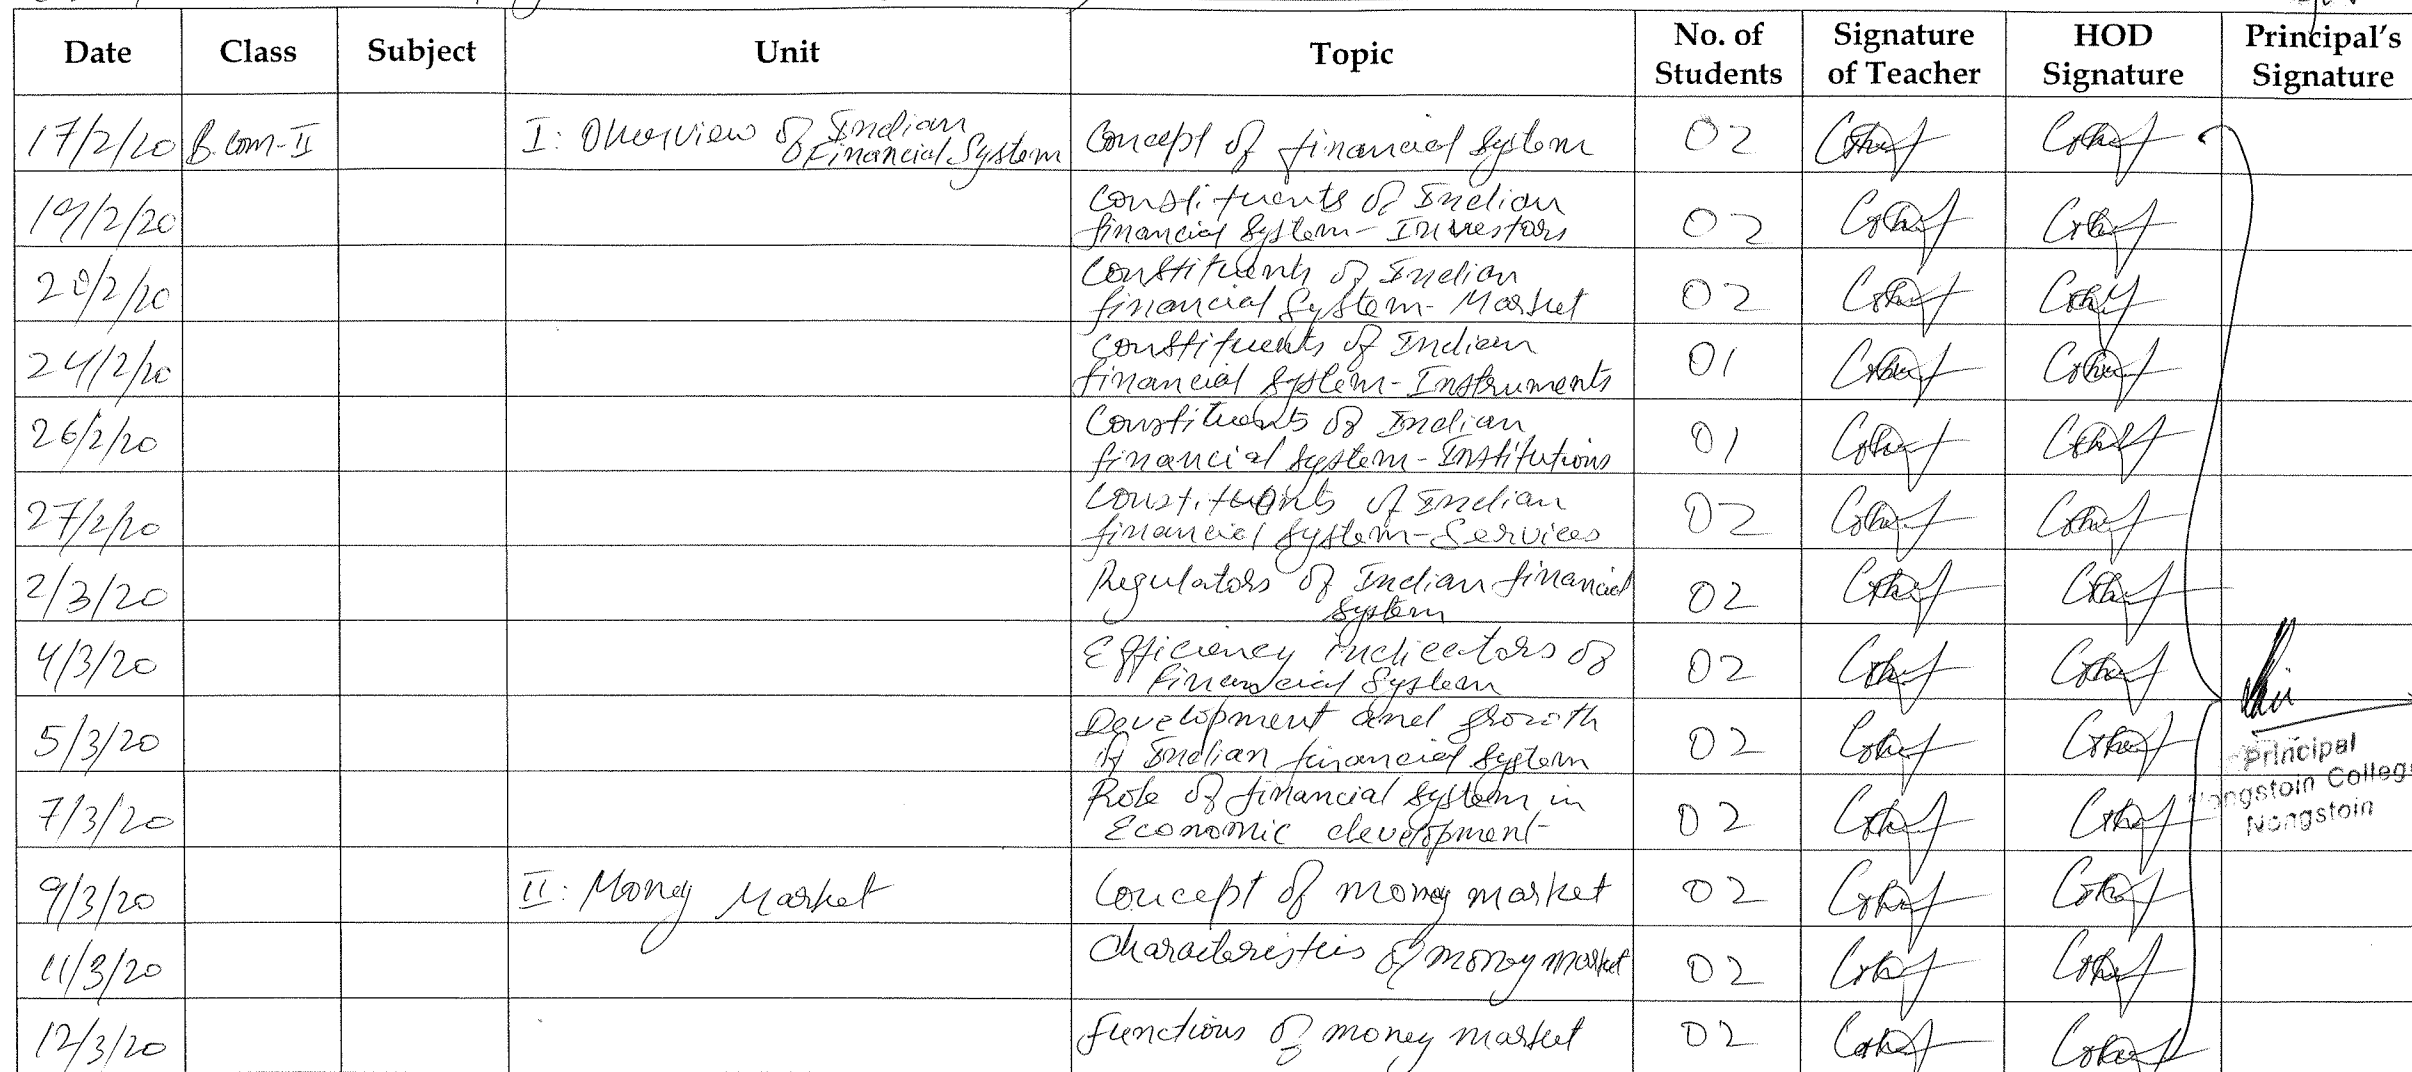 Date Class Subject Unit Topic No. of Students Signature of Teacher HOD Signature Principal's Signature
17/2/20 B.Com-II I: Overview of Indian Financial System Concept of financial System 02
19/2/20 Constituents of Indian financial System - Investors 02
20/2/20 Constituents of Indian financial System - Market 02
24/2/20 Constituents of Indian financial System - Instruments 01
26/2/20 Constituents of Indian financial System - Institutions 01
27/2/20 Constituents of Indian financial System - Services 02
2/3/20 Regulators of Indian financial System 02
4/3/20 Efficiency indicators of financial System 02
5/3/20 Development and growth of Indian financial System 02
7/3/20 Role of financial System in Economic development 02
Principal
Nongstoin College
Nongstoin
9/3/20 II: Money Market Concept of money market 02
11/3/20 Characteristics of money market 02
12/3/20 functions of money market 02